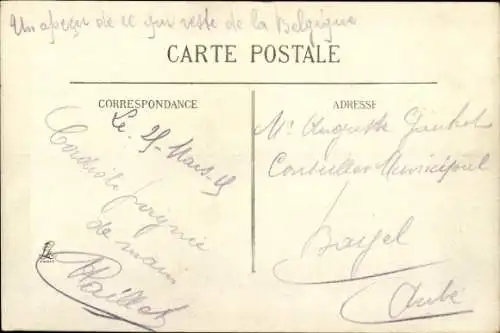 Un aperçu de ce qui reste de la Belgique
CARTE POSTALE
CORRESPONDANCE
ADRESSE
Le 25 Mars 15
Cordiale poignée
de main
Mr Auguste
Conseiller Municipal
Bayel
Aube